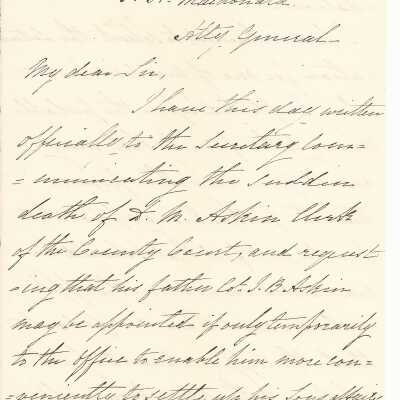 Macdonald
Att'y General
My dear Sir,
I have this day written
officially to the Secretary com-
= municating the sudden
death of D. M. Askin Clerk
of the County Court, and request
-ing that his father Col. J. B Askin
may be appointed if only temporarily
to the office to enable him more con=
=veniently to settle up his Sons affairs